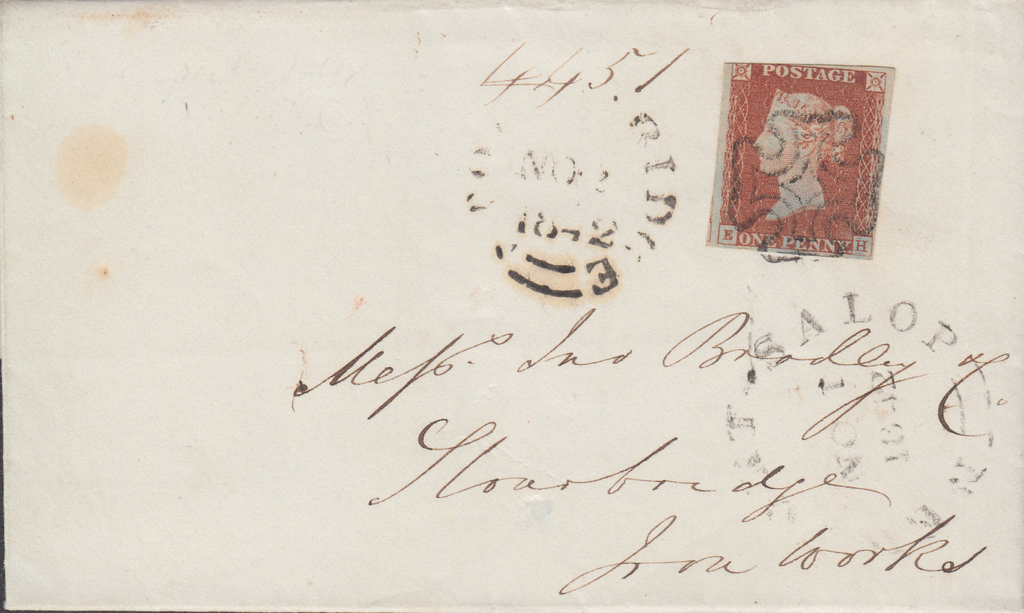 4451
POSTAGE
E ONE PENNY H
NO
1842
SALOP
NO 1
1842
Messrs. Jno Bradley & Co.
Stourbridge
Iron Works